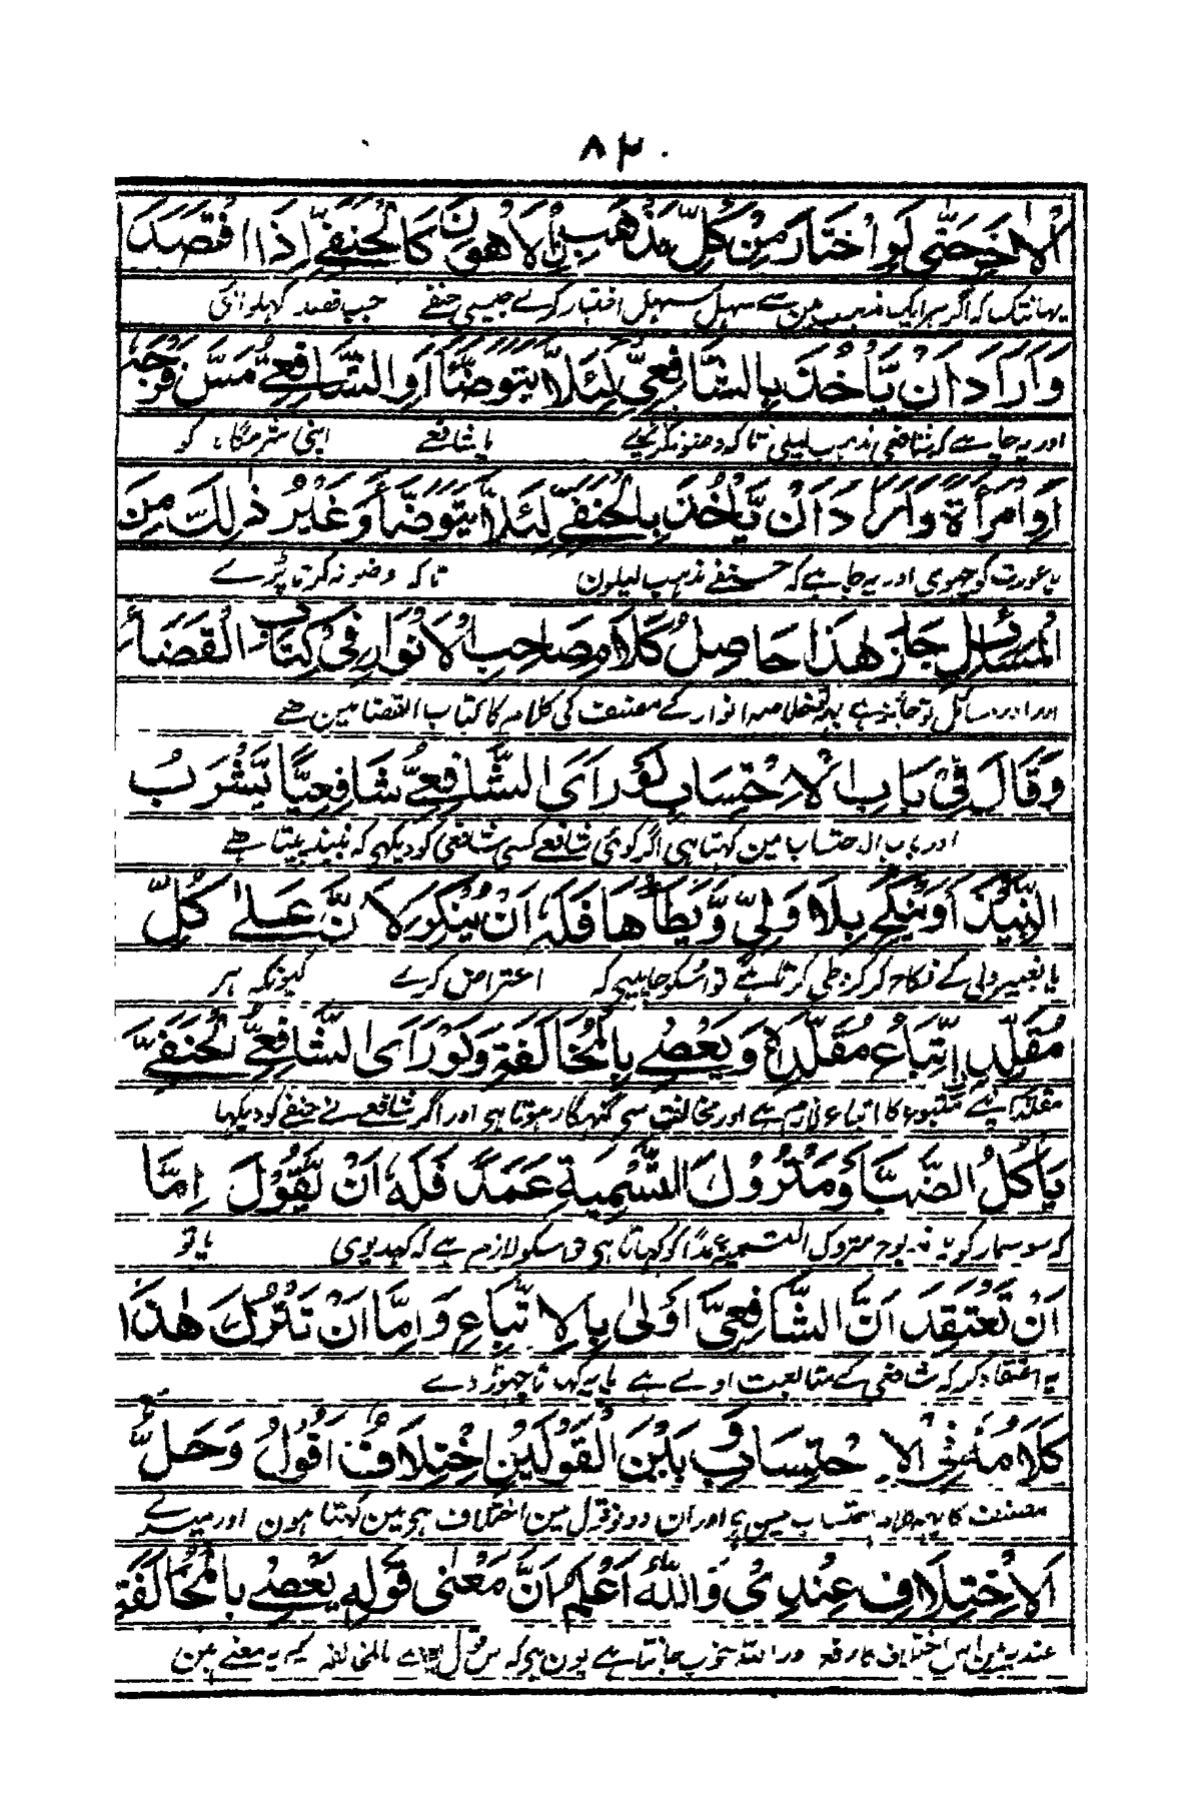 ۸۳
الْاٰخَرِ حَتّٰى لَوِ اخْتَارَ مِنْ كُلِّ مَذْهَبٍ بِالْاَهْوَنِ كَالْحَنَفِيِّ اِذَا افْتَصَدَ
یہانتک کہ اگر ہر ایک مذہب مین سے سہل سہل اختیار کرلے جیسی حنفے جب فصد کہلوائی
وَاَرَادَ اَنْ يَّأْخُذَ بِالشَّافِعِيِّ لِئَلَّا يَتَوَضَّأَ اَوِ الشَّافِعِيُّ مَسَّ فَرْجَهٗ
اور یہ چاہے کہ شافعی مذہب لیلی تاکہ وضو نکرنا یا شافعے اپنی شرمگاہ کو
اَوِ امْرَأَةً وَاَرَادَ اَنْ يَّأْخُذَ بِالْحَنَفِيِّ لِئَلَّا يَتَوَضَّأَ وَغَيْرُ ذٰلِكَ مِنَ
یا عورت کو چہوی اور یہ چاہے کہ حنفے مذہب لیلون تاکہ وضو نہ کرنا پڑے
الْمَسَائِلِ جَازَ هٰذَا حَاصِلُ كَلَامِ صَاحِبِ الْاَنْوَارِ فِيْ كِتَابِ الْقَضَاءِ
اور اور مسائل تو جائز ہے یہ خلاصہ انوار کے مصنف کی کلام کا کتاب القضا مین ہے
وَقَالَ فِيْ بَابِ الْاِحْتِسَابِ لَوْ رَاَى الشَّافِعِيُّ شَافِعِيًّا يَّشْرَبُ
اور باب الاحتساب مین کہتا ہی اگر کوئی شافعے کسی شافعی کو دیکھی کہ نبیذ پیتا ہے
النَّبِيْذَ اَوْ يَنْكِحُ بِلَا وَلِيٍّ وَّيَطَأُهَا فَلَهٗ اَنْ يُّنْكِرَ لِاَنَّ عَلٰى كُلِّ
یا بغیر ولی کے نکاح کر کر وطی کرتا ہے تو اسکو چاہیے کہ اعتراض کرے کیونکہ ہر
مُقَلِّدٍ اِتِّبَاعُ مُقَلَّدِهٖ وَيَعْصِيْ بِالْمُخَالَفَةِ وَلَوْ رَاَى الشَّافِعِيُّ الْحَنَفِيَّ
مقلد کو اپنے متبوع کا اتباع لازم ہے اور مخالفت سی گنہگار ہوتا ہی اور اگر شافعے نے حنفے کو دیکہا
يَأْكُلُ الضَّبَّ اَوْ مَتْرُوْكَ التَّسْمِيَةِ عَمَدًا فَلَهٗ اَنْ يَّقُوْلَ اِمَّا
کہ سوسمار کو یا مذبوح متروک التسمیہ عمداً کو کہاتا ہی تو اسکو لازم ہے کہ کہدیوی یا تو
اَنْ تَعْتَقِدَ اَنَّ الشَّافِعِيَّ اَوْلٰى بِالْاِتِّبَاعِ وَاِمَّا اَنْ تَتْرُكَ هٰذَا
یہ اعتقاد کر کہ شافعی کے متابعت اولے ہے یا یہ کہانا چہوڑ دے
كَلَامُهٗ فِي الْاِحْتِسَابِ وَبَيْنَ الْقَوْلَيْنِ اِخْتِلَافٌ اَقُوْلُ وَحَلُّ
مصنف کا یہہ کلام احتساب مین ہی اور ان دونو قول مین اختلاف ہی مین کہتا ہون اور میرے
الْاِخْتِلَافِ عِنْدِيْ وَاللّٰهُ اَعْلَمُ اَنَّ مَعْنٰى قَوْلِهٖ يَعْصِيْ بِالْمُخَالَفَةِ
عندیہ مین اس اختلاف کا رفع اور اللہ خوب جانتا ہے یون ہی کہ اس قول بالمخالفہ کے یہ معنے ہین